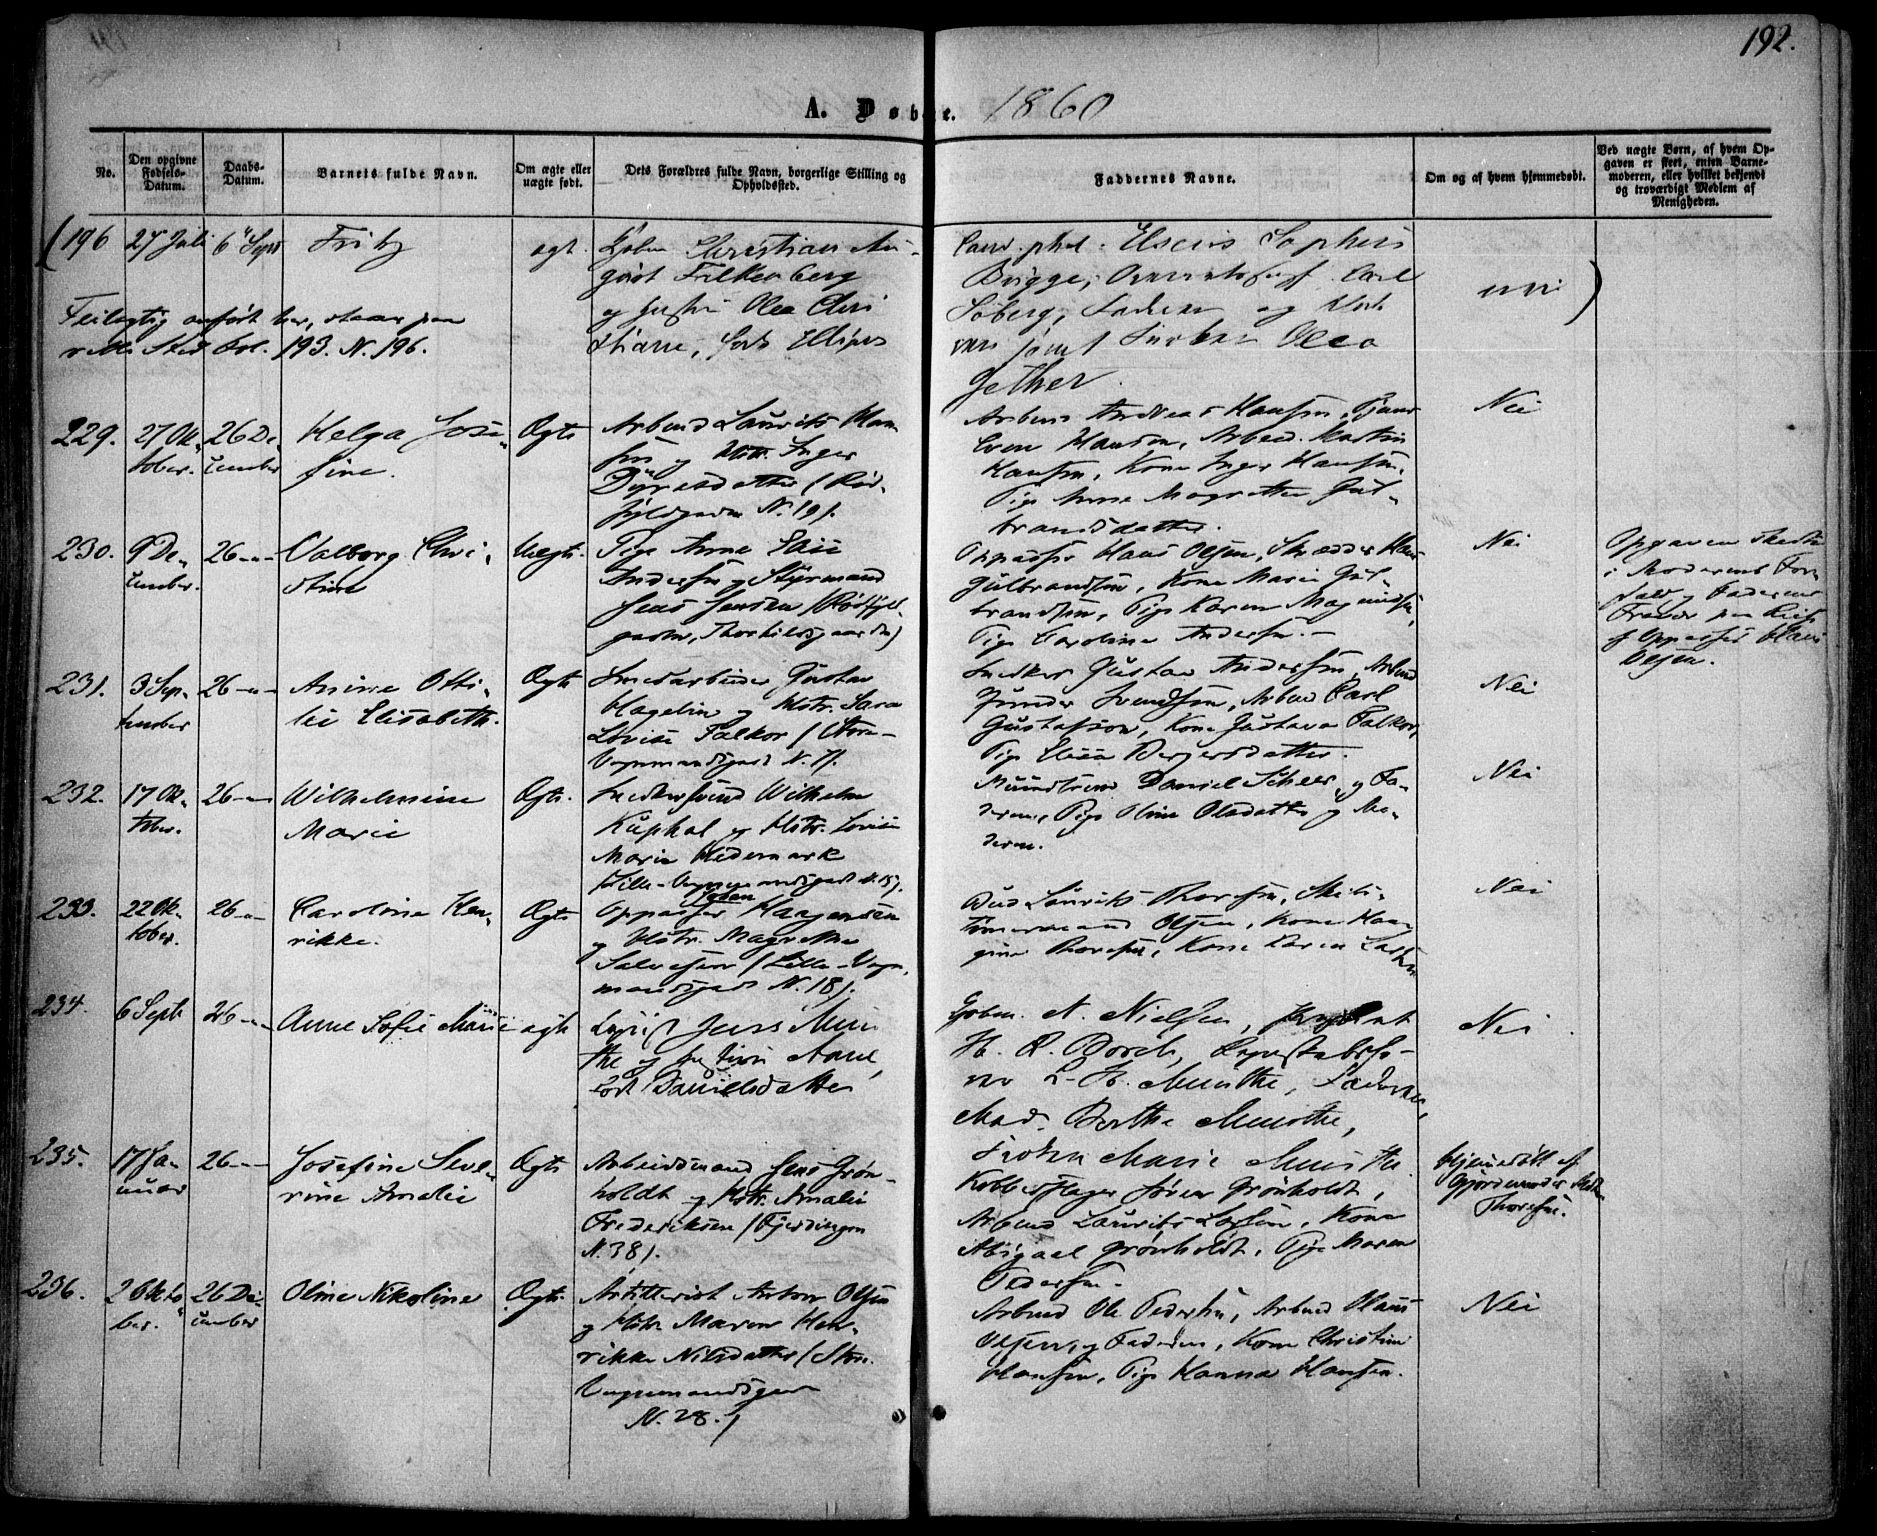 192.
A. Døbte. 1860
No.
Den opgivne
Fødsels-
Datum.
Daabs-
Datum.
Barnets fulde Navn.
Om ægte eller
uægte født.
Dets Forældres fulde Navn, borgerlige Stilling og
Opholdssted.
Faddernes Navne.
Om og af hvem hjemmedøbt.
Ved uægte Børn, af hvem Op-
gaven er skeet, enten Barne-
moderen, eller hvilket bekjendt
og troværdigt Medlem af
Menigheden.
(196
27 Juli
6 Sept
Fritz
ægt.
Kjøbm Christian Au-
gust Falkenberg
og Hustru Olea Chri
stiane,
Feilagtig anført her, staar paa
rette Sted Fol. 193. N. 196.
Cand. phil.
Brigge, Carl
Søberg, Faderen og
samt Olea
Gether.
nei )
229.
27 Ok-
tober.
26 De-
cember
Helga Jose-
fine.
Ægte
Arbmd Laurits Han-
sen og Hstr. Inger
N. 19).
Arbmd Andreas Hansen,
Even Hansen, Arbmd. Martin
Hansen, Kone Inger Hansen,
Pige Anne Magrethe Gul-
brandsdatter.
Nei
230.
9 De-
cember.
26 —
Valborg Chri-
stine
Uægte.
Pige Anne
Andersen og Styrmand
Jens Jensen (Rødfyld-
gaden,
Oppasser Hans Olsen, Skrædder Hans
Gulbrandsen, Kone Marie Gul-
brandsen, Pige Karen Magnussen,
Pige Caroline Andersen. —
Nei
Opgaven skedte
i Moderens For-
fald og Faderens
Fravær paa Reise
af Oppasser Hans
Olsen.
231.
3 Sep-
tember
26 —
Anine Otti-
lie Elisabeth.
Ægte
Smedarbeider Gustav
Hagelin og Hstr. Sara
Lovise Falkor (Store-
Vognmandsgade N. 7).
Snedker Gustav Andersen, Arbmd
Gunder Svendsen, Arbmd Carl
Gustafsson, Kone Gustava Falkor,
Pige Elisa Bergersdatter.
Nei
232.
17 Ok-
tober.
26 —
Wilhelmine
Marie
Ægte.
Snedkersvend Wilhelm
Kuphal og Hstr. Lovise
Marie Hedemark
(Lille-Vognmandsgade N. 15).
Muursvend Daniel Scheer, og Fa-
deren, Pige Oline Olsdatter og Mo-
deren.
Nei
233.
22 Ok-
tober.
26 —
Caroline Hen-
rikke.
Ægte
Oppasser Haagensen
og Hstr. Magrethe
Salvesen (Lille-Vogn-
mandsgade N. 18).
Bud Laurits Thoresen, Skibs-
tømmermand Olsen, Kone Haa-
gine Thoresen, Kone Karen
Nei
234.
6 Sept
26 —
Anne Sofie Marie
ægte
Jens Mun
the og Hustru Anne,
født Danielsdatter
Gjøbm. N. Nielsen,
H. P. Borch,
L. H. Munthe, Faderen,
Mad. Berthe Munthe,
Frøken Marie Munthe.
Nei.
235.
17 Ja-
nuar
26 —
Josefine Seve-
rine Amalie
Ægte
Arbeidsmand Jens Grøn-
holdt og Hstr. Amalie
Frederiksen (Fjerdingen
N. 38).
Kobberslager Grønholdt,
Arbmd Laurits Larsen, Kone
Abigael Grønholdt, Pige Maren
Pedersen.
Hjemmedøbt af
Gjordemoder
Thoresen.
236.
2 Okto-
ber.
26 De-
cember
Oline Nikoline
Ægte.
Artillerist Anton Olsen
og Hstr Maren Hen-
rikke Nilsdatter (Store
Vognmandsgade
N. 28.)
Arbmd Ole Pedersen, Arbmd Hans
Olsen, og Faderen, Kone Christine
Hansen, Pige Hanna Hansen.
Nei